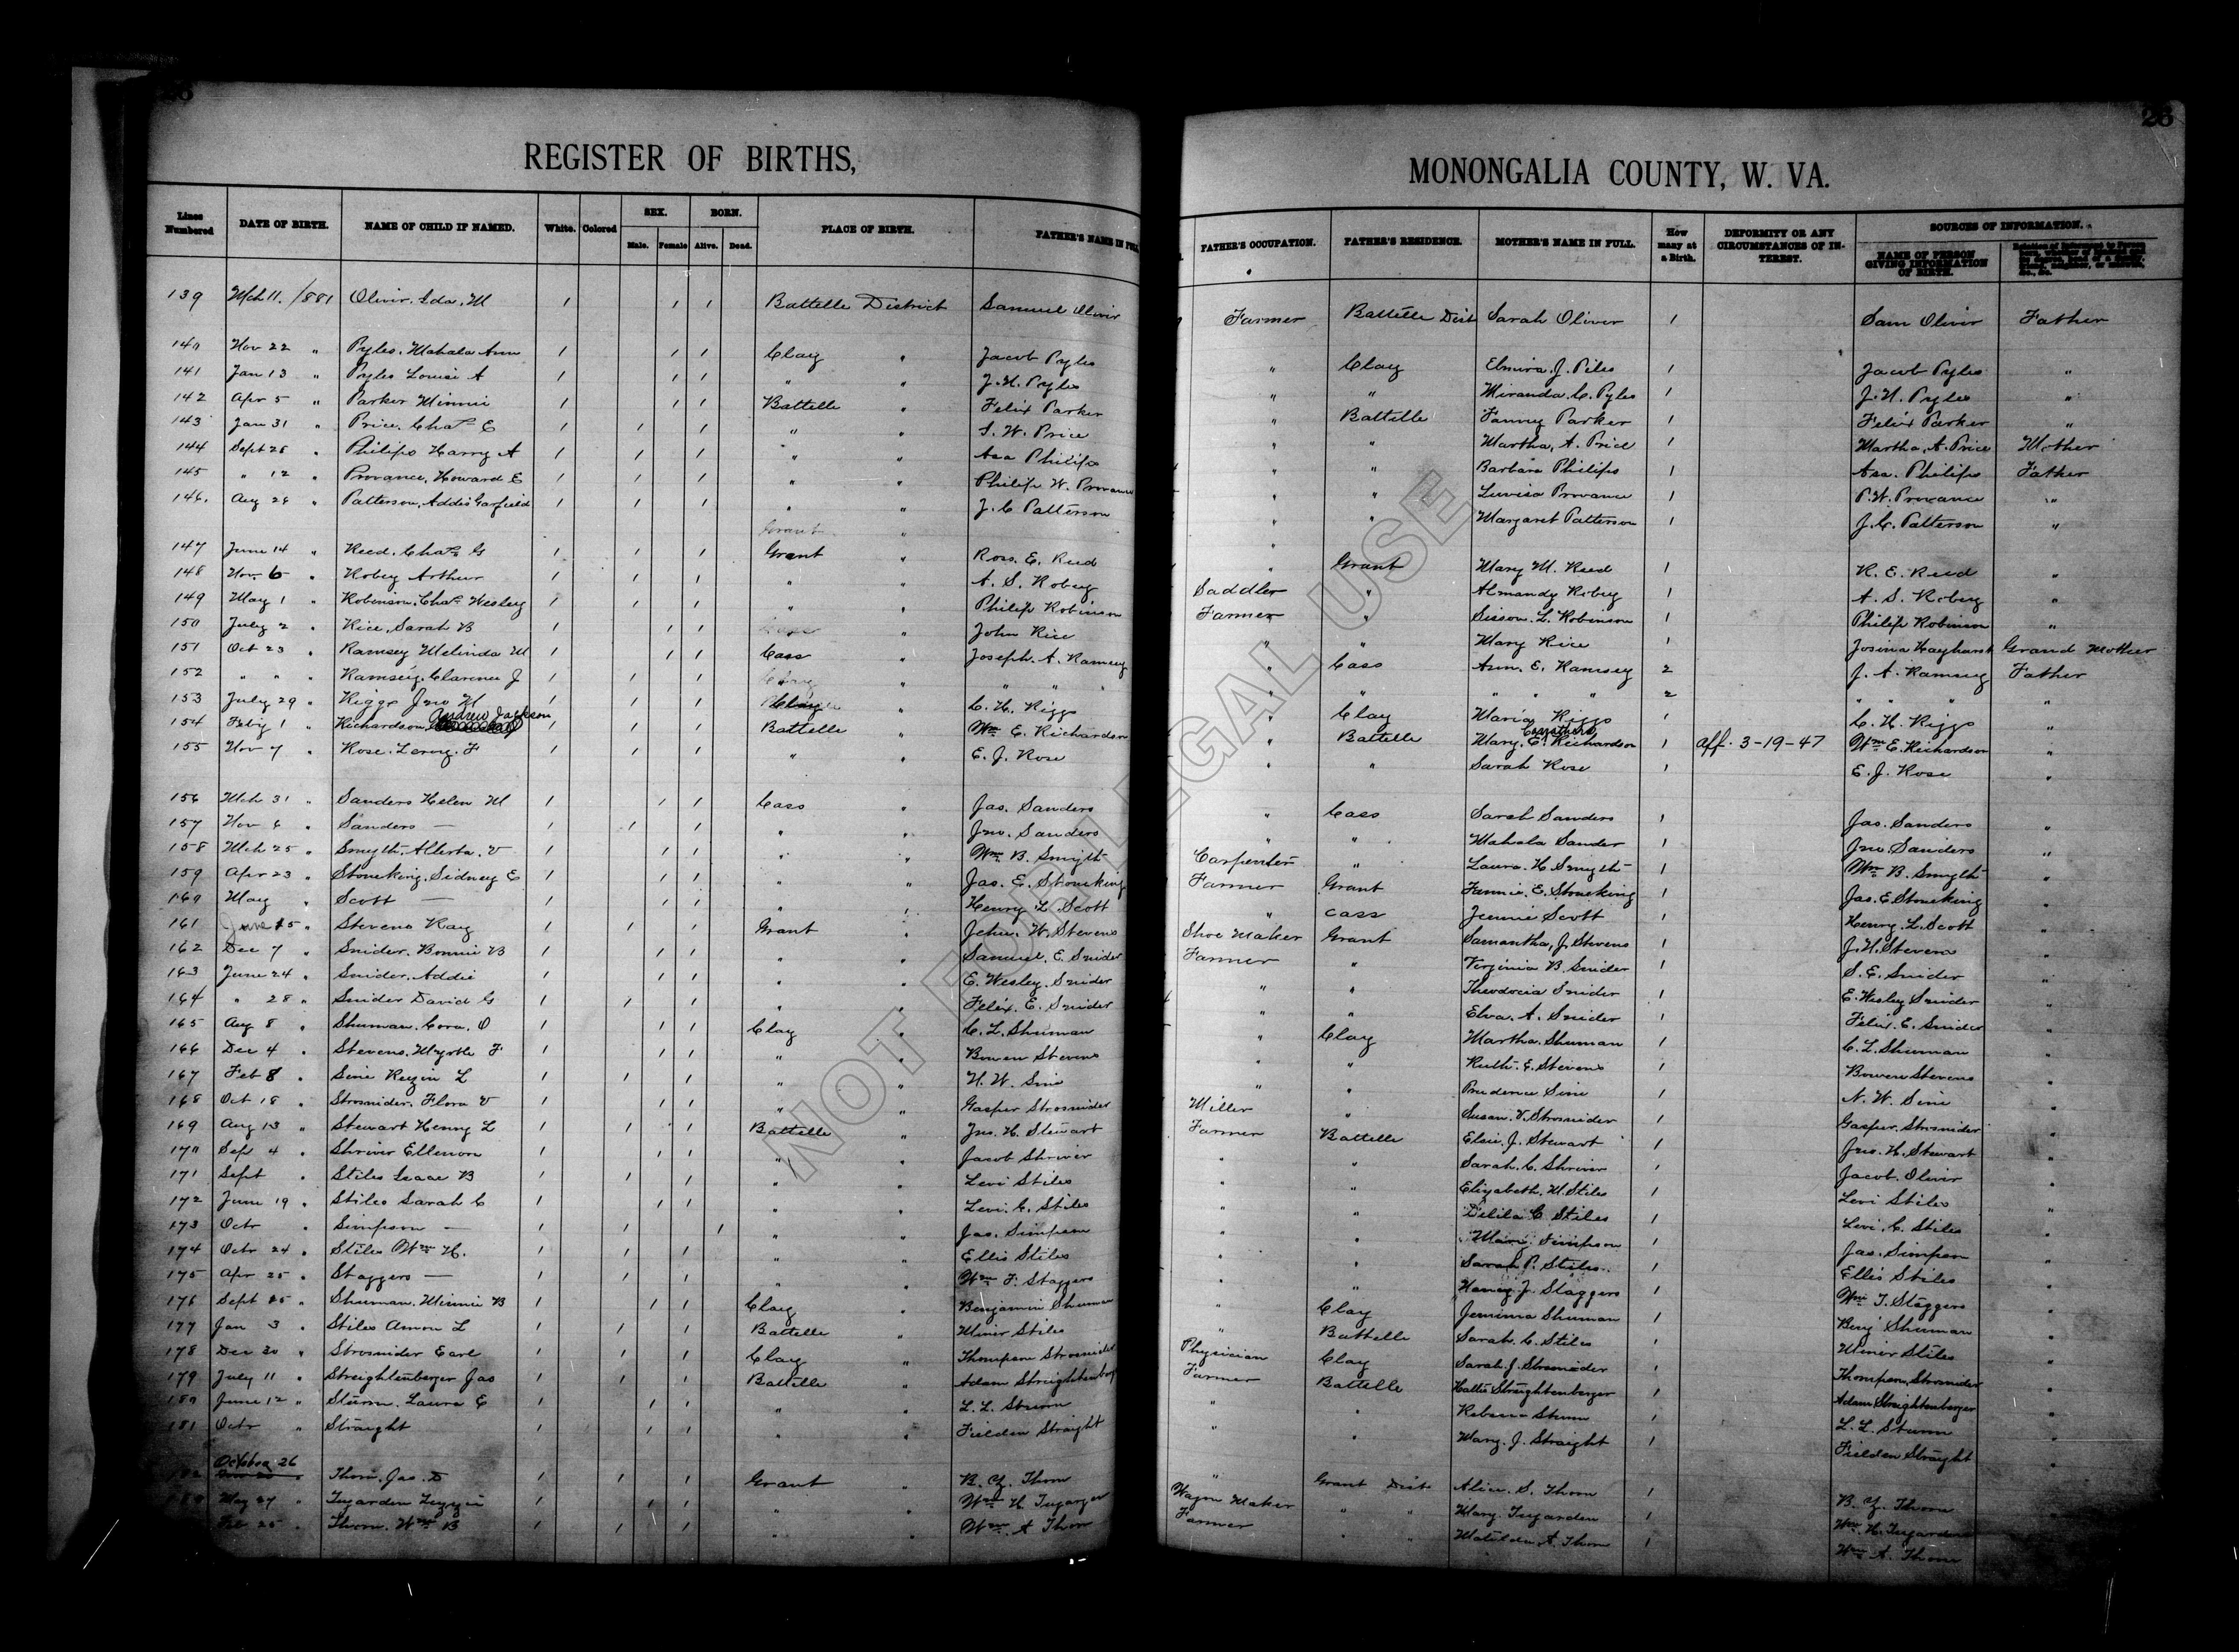 26
26
REGISTER OF BIRTHS,
MONONGALIA COUNTY, W. VA.
Lines Numbered DATE OF BIRTH. NAME OF CHILD IF NAMED. White. Colored SEX. Male. Female BORN. Alive. Dead. PLACE OF BIRTH. FATHER'S NAME IN FULL FATHER'S OCCUPATION. FATHER'S RESIDENCE. MOTHER'S NAME IN FULL. How many at a Birth. DEFORMITY OR ANY CIRCUMSTANCES OF INTEREST. SOURCES OF INFORMATION. NAME OF PERSON GIVING INFORMATION OF BIRTH.
139 Mch 11. 1881 Olivir. Ida. M 1 1 1 Battelle District Samuel Olivir Farmer Battelle Dist Sarah Oliver 1 Sam Olivir Father
140 Nov 22 " Pyles. Mahala Ann 1 1 1 Clay " Jacob Pyles " Clay Elmira. J. Piles 1 Jacob Pyles "
141 Jan 13 " Pyles Louisi A 1 1 1 " " J. H. Pyles " " Miranda. C. Pyles 1 J. H. Pyles "
142 Apr 5 " Parker Minnie 1 1 1 Battelle " Felix Parker " Battelle Fanny Parker 1 Felix Parker "
143 Jan 31 " Price. Chas E 1 1 1 " " S. W. Price " " Martha, A. Price 1 Martha, A. Price Mother
144 Sept 28 " Philips Harry A 1 1 1 " " Asa Philips " " Barbara Philips 1 Asa. Philips Father
145 " 12 " Provance, Howard E 1 1 1 " " Philip W. Provance " " Luvisa Provance 1 P. W. Provance "
146. Aug 26 " Patterson, Addis Garfield 1 1 1 " " J. C Patterson " " Margaret Patterson 1 J. C. Patterson "
147 June 14 " Reed. Chas G 1 1 1 Grant " Ross. E. Reed " Grant Mary M. Reed 1 R. E. Reed "
148 Nov. 6 " Robey Arthur 1 1 1 " " A. S. Robey Saddler " Almandy Robey 1 A. S. Robey "
149 May 1 " Robinson. Chas Wesley 1 1 1 " " Philip Robinson Farmer " Sisson. L. Robinson 1 Philip Robinson "
150 July 2 " Rice, Sarah B 1 1 1 Cass " John Rice " " Mary Rice 1 Josina Hayhurst Grand Mother
151 Oct 23 " Ramsey Melinda M 1 1 1 Cass " Joseph. A. Ramsey " Cass Ann. E. Ramsey 2 J. A. Ramsey Father
152 " " " Ramsey. Clarence J 1 1 1 " " " " " " " " 2 " " " "
153 July 29 " Riggs Jno H 1 1 1 Clay " C. H. Riggs " Clay Maria Riggs 1 C. H. Riggs "
154 Feby 1 " Richardson Andrew Jackson 1 1 1 Battelle " Wm E. Richardson " Battelle Mary. E. Carothers Richardson 1 Aff. 3-19-47 Wm E. Richardson "
155 Nov 7 " Rose. Leroy. F 1 1 1 " " E. J. Rose " " Sarah Rose 1 E. J. Rose "
156 Mch 31 " Sanders Helen M 1 1 1 Cass " Jas. Sanders " Cass Sarah Sanders 1 Jas. Sanders "
157 Nov 6 " Sanders — 1 1 1 " " Jno. Sanders " " Mahala Sander 1 Jno Sanders "
158 Mch 25 " Smyth. Alberta. V 1 1 1 " " Wm B. Smyth Carpenter " Laura. H Smyth 1 Wm B. Smyth "
159 Apr 23 " Stoneking. Sidney E 1 1 1 " " Jas. E. Stoneking Farmer Grant Fannie. E. Stoneking 1 Jas. E. Stoneking "
160 May " Scott — 1 1 1 " " Henry L Scott " Cass Jennie Scott 1 Henry. L. Scott "
161 June 15 " Stevens Ray 1 1 1 Grant " John. W. Stevens Shoe Maker Grant Samantha, J. Stevens 1 J. H. Stevens "
162 Dec 7 " Snider. Bonnie B 1 1 1 " " Samuel. E. Snider Farmer " Virginia B. Snider 1 S. E. Snider "
163 June 24 " Snider. Addie 1 1 1 " " E. Wesley. Snider " " Theodocia Snider 1 E. Wesley Snider "
164 " 28 " Snider David G 1 1 1 " " Felix. E. Snider " " Elva. A. Snider 1 Felix. E. Snider "
165 Aug 8 " Shuman. Cora. O 1 1 1 Clay " C. L. Shuman " Clay Martha. Shuman 1 C. L. Shuman "
166 Dec 4 " Stevens. Myrtle F 1 1 1 " " Bowen Stevens " " Ruth. E. Stevens 1 Bowen Stevens "
167 Feb 8 " Sine Rezin L 1 1 1 " " N. W. Sine " " Prudence Sine 1 N. W. Sine "
168 Oct 18 " Strosnider. Flora V 1 1 1 " " Gasper Strosnider Miller " Susan. V. Strosnider 1 Gasper. Strosnider "
169 Aug 13 " Stewart Henry L 1 1 1 Battelle " Jno. H. Stewart Farmer Battelle Elsie. J. Stewart 1 Jno. H. Stewart "
170 Sep 4 " Shriver Ellenora 1 1 1 " " Jacob Shriver " " Sarah. C. Shriver 1 Jacob. Olivir "
171 Sept " Stiles Isaac B 1 1 1 " " Levi Stiles " " Elizabeth. M. Stiles 1 Levi Stiles "
172 June 19 " Stiles Sarah C 1 1 1 " " Levi. C. Stiles " " Delila C Stiles 1 Levi. C. Stiles "
173 Octr " Simpson — 1 1 1 " " Jas. Simpson " " Mary Simpson 1 Jas. Simpson "
174 Octr 24 " Stiles Wm H. 1 1 1 " " Ellis Stiles " " Sarah P. Stiles. 1 Ellis Stiles "
175 Apr 25 " Staggers — 1 1 1 " " Wm T. Staggers " " Nancy. J. Staggers 1 Wm T. Staggers "
176 Sept 25 " Shuman. Minnie B 1 1 1 Clay " Benjamin Shuman " Clay Jemima Shuman 1 Benj Shuman "
177 Jan 3 " Stiles Amon L 1 1 1 Battelle " Minor Stiles " Battelle Sarah. C. Stiles 1 Minor Stiles "
178 Dec 30 " Strosnider Earl 1 1 1 Clay " Thompson Strosnider Physician Clay Sarah. J. Strosnider 1 Thompson, Strosnider "
179 July 11 " Streightenberger Jas 1 1 1 Battelle " Adam Streightenberger Farmer Battelle Hattie Streightenberger 1 Adam Streightenberger "
180 June 12 " Sturm. Laura E 1 1 1 " " L. L. Sturm " " Sturm 1 L. L. Sturm "
181 Octr " Straight 1 1 1 " " Fielden Straight " " Mary. J. Straight 1 Fielden Straight "
October 26
182 Thorn. Jas. D 1 1 1 Grant " B. Z. Thorn " Grant Dist Alice. S. Thorn 1 B. Z. Thorn "
May 27 " Tugarden Lizzie 1 1 1 " " Wm H Wagon Maker " " Mary. Tugarden 1 Wm. H. Tugarden
Feb 25 " Thorn. Wm B 1 1 1 " " Wm. A Thorn Farmer " " Matilda. A. Thorn 1 Wm A. Thorn
NOT FOR LEGAL USE